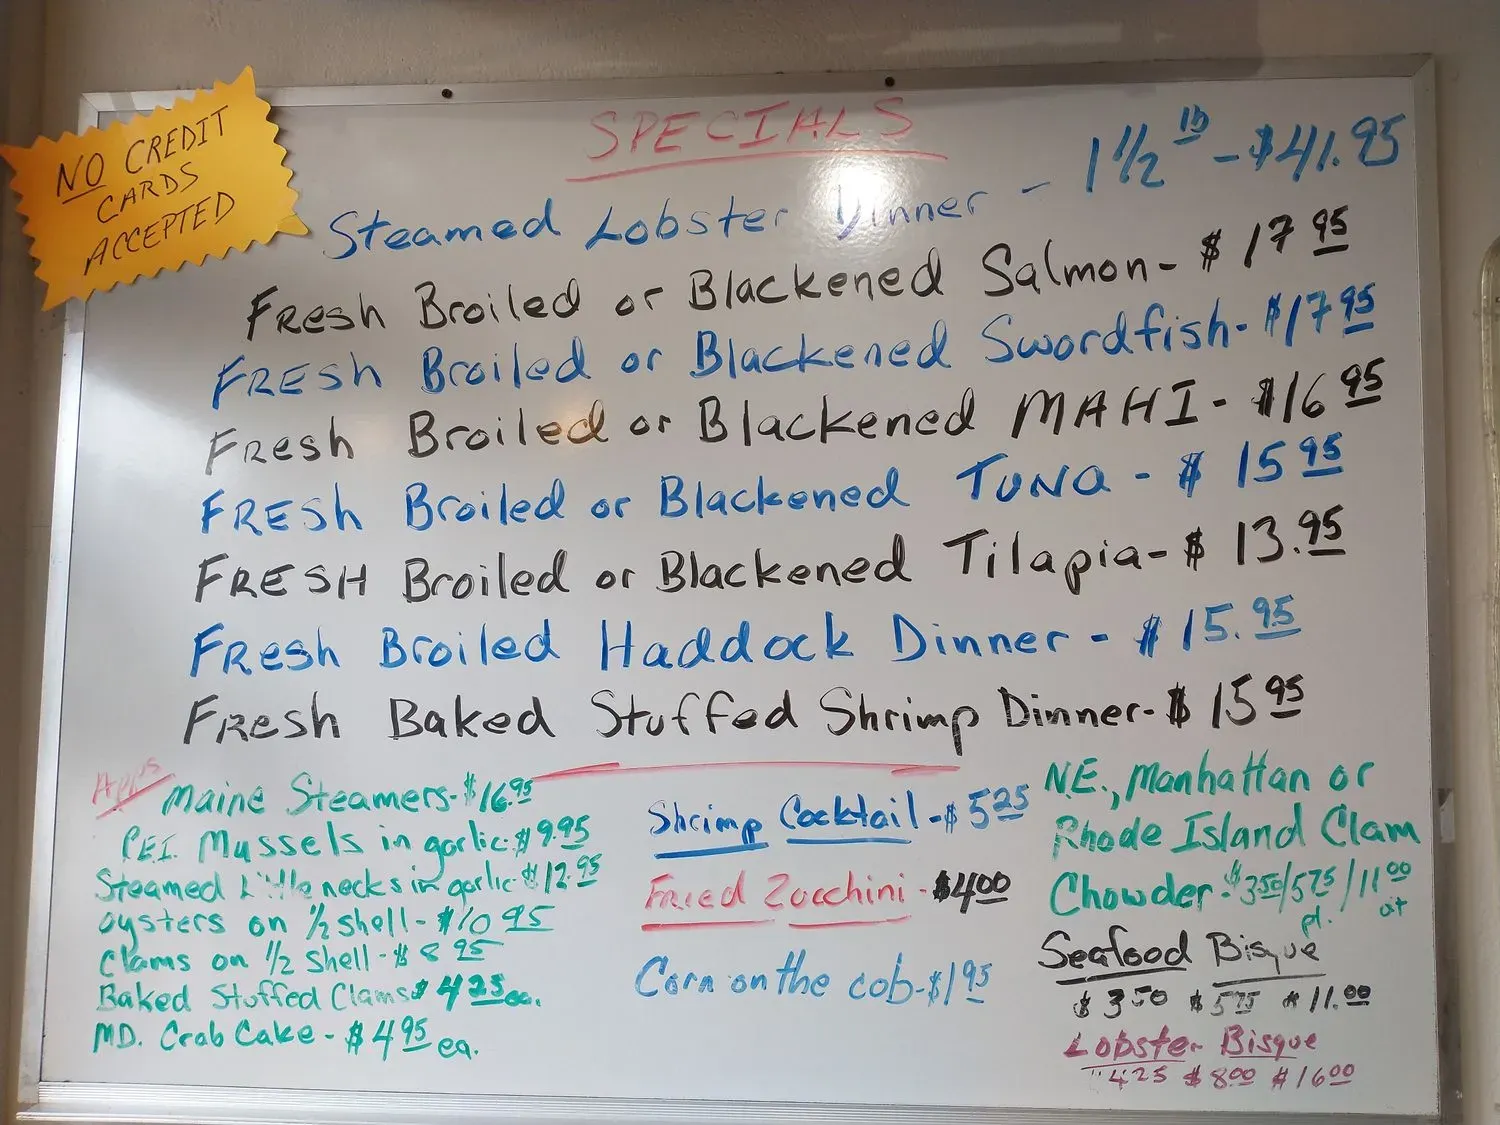 NO CREDIT
CARDS
ACCEPTED
SPECIALS
Steamed Lobster Dinner - 1 1/2 lb - $41.95
Fresh Broiled or Blackened Salmon - $17 95
FRESH Broiled or Blackened Swordfish - $17 95
Fresh Broiled or Blackened MAHI - $16 95
FRESH Broiled or Blackened TUNA - $15 95
FRESH Broiled or Blackened Tilapia - $13.95
Fresh Broiled Haddock Dinner - $15.95
Fresh Baked Stuffed Shrimp Dinner - $15 95
Apps
Maine Steamers - $16.95
P.E.I. Mussels in garlic - $9.95
Steamed Littlenecks in garlic - $12.95
oysters on 1/2 shell - $10 95
Clams on 1/2 shell - $8 95
Baked Stuffed Clams $4 25 ea.
MD. Crab Cake - $4 95 ea.
Shrimp Cocktail - $5 25
Fried Zucchini - $4 00
Corn on the cob - $1 95
N.E., Manhattan or
Rhode Island Clam
Chowder - $3 50/5 75/11 00
pt. qt
Seafood Bisque
$3 50 $5 75 $11.00
Lobster Bisque
4 25 $8 00 $16 00